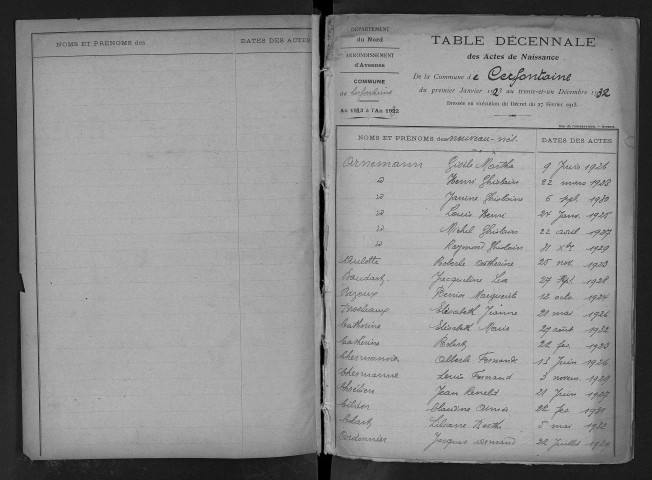 NOMS ET PRÉNOMS des
DATES DES ACTES
DÉPARTEMENT
du Nord
ARRONDISSEMENT
d'Avesnes
COMMUNE
de Cerfontaine
An 1923 à l'An 1932
TABLE DÉCENNALE
des Actes de Naissance
De la Commune de Cerfontaine
du premier Janvier 1923 au trente-et-un Décembre 1932
Dressée en exécution du Décret du 27 Février 1913.
NOMS ET PRÉNOMS des nouveau-nés
DATES DES ACTES
Arnemann Gisèle Martha 9 Juin 1926
d Henri Ghislain 22 mars 1928
d Janine Ghislaine 6 sept. 1930
d Louis Henri 24 Janv. 1925
d Michel Ghislain 22 avril 1927
d Raymond Ghislain 21 Xbre 1929
Aulotte Roberte Catherine 25 nov. 1923
Baudart Jacqueline Léa 27 sept. 1928
Marguerite 12 octo 1924
Elisabeth Jeanne 28 mai 1926
Catherine Elisabeth Marie 29 août 1932
Catherine Robert 22 fév. 1923
Alberte Fernande 13 Juin 1926
Louis Fernand 3 novem. 1929
Chrétien Jean 21 Juin 1927
Claudine 22 fév. 1931
Liliane Berthe 5 mai 1932
Cordonnier Jacques Armand 22 Juillet 1929